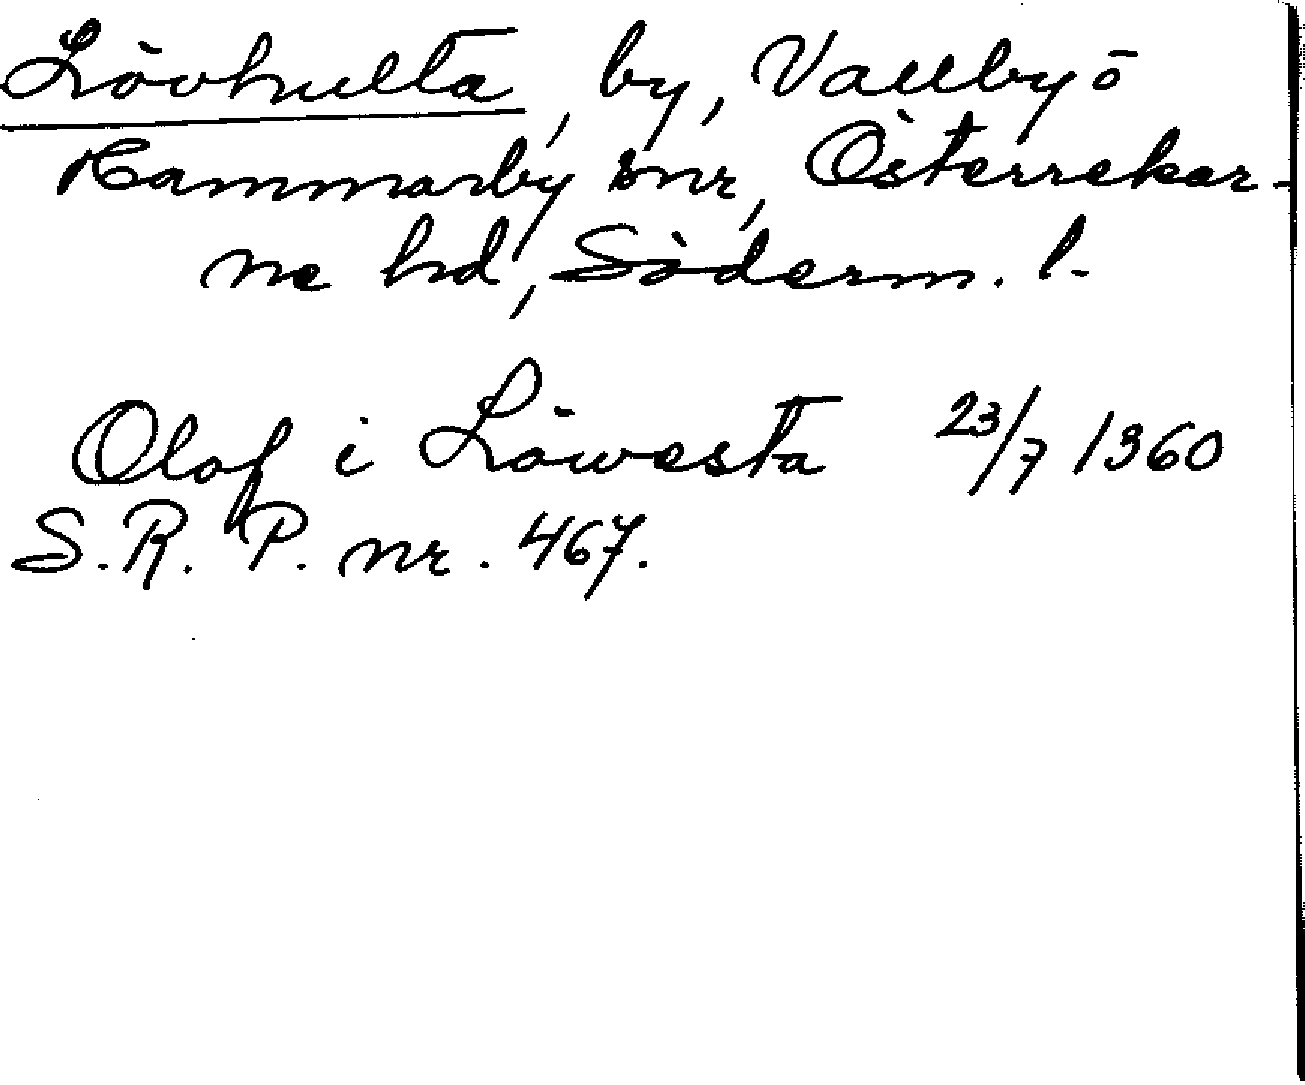 Lövhulta, by, Vallby o
Hammarby snr, Österrekar-
ne hd, Söderm. l.
Olof i Löwesta 23/7 1360
S.R.P. nr. 467.